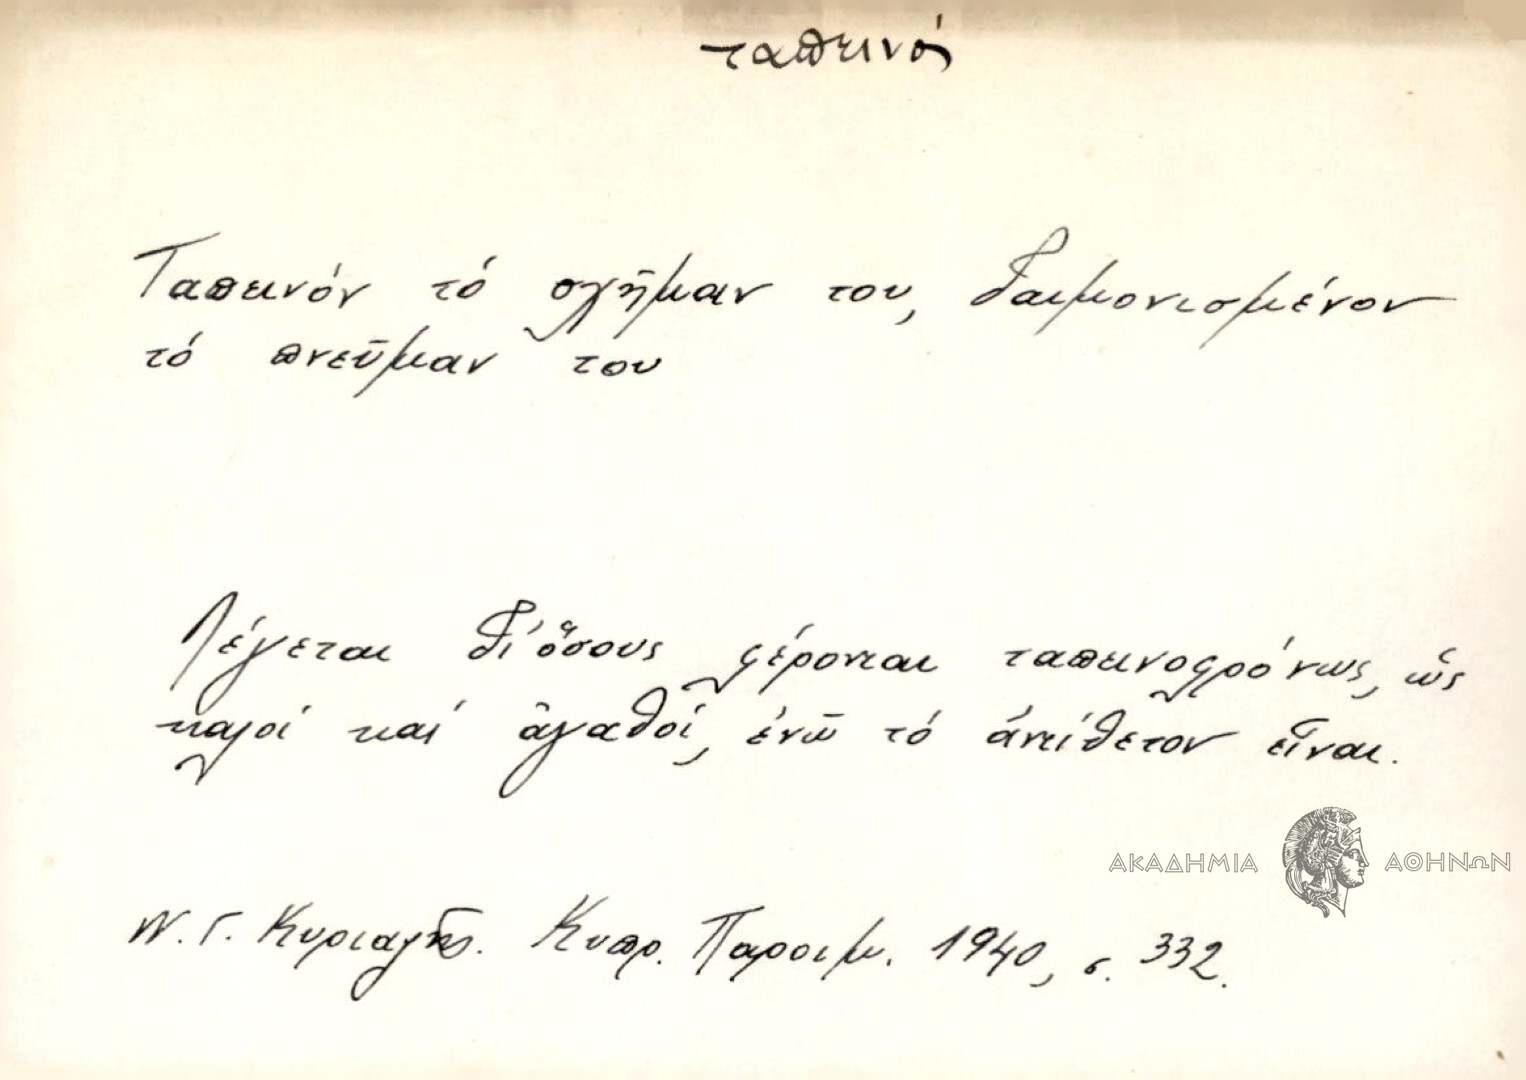 ταπεινός
Ταπεινόν τό σχῆμαν του, δαιμονισμένον
τό πνεῦμαν του
Λέγεται δι' ὅσους φέρονται ταπεινοφρόνως, ὡς
καλοί καί ἀγαθοί, ἐνῶ τό ἀντίθετον εἶναι.
ΑΚΑΔΗΜΙΑ ΑΘΗΝΩΝ
Ν. Γ. Κυριαζῆς. Κυπρ. Παροιμ. 1940, σ. 332.